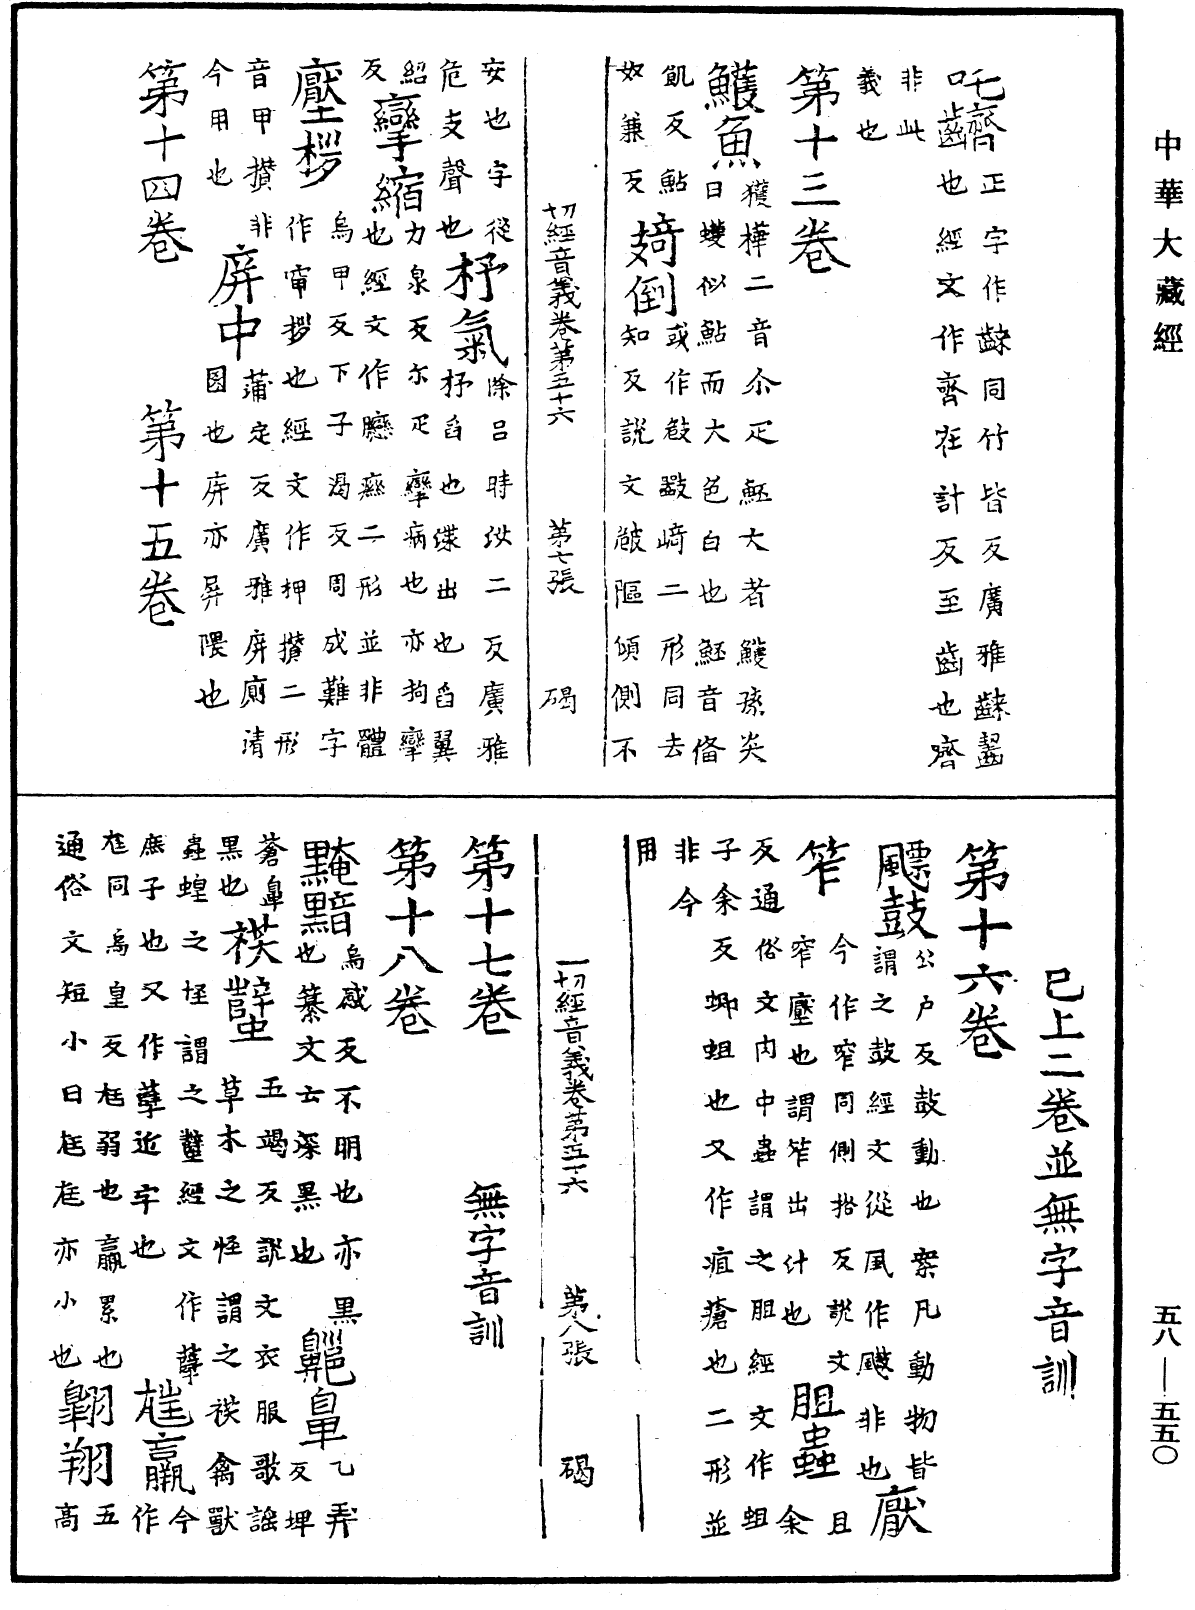 中華大藏經
吒𪗶 正字作齼同竹皆反廣雅齼齧
也經文作齊在計反至齒也齊
非此
義也
第十三卷
鱯魚 獲樺二音尒疋魾大者鱯孫炎
曰鱯似鮎而大色白也魾音俻
飢反鮎
奴兼反
攲倒 或作攲敧﨑二形同去
知反說文㩻䧢傾側不
切經音義卷第五十六 第七張 碣
安也字從
危支聲也
抒氣 除呂時汝二反廣雅
抒舀也渫出也舀翼
紹
反
攣縮 力泉反尒疋攣病也亦拘攣
也經文作臕㾾二形並非體
壓桚 烏甲反下子渴反周成難字
作窜桚也經文作押攢二形
音甲攢非
今用也
屏中 蒲定反廣雅屏廁清
圂也屏亦屏隈也
第十四卷 第十五卷
已上二卷並無字音訓
第十六卷
飃鼓 公户反鼓動也案凡動物皆
謂之鼓經文從風作飃非也
厭
笮 今作窄同側挌反說文
窄壓也謂笮出汁也
胆蟲 且
余
反通俗文肉中蟲謂之胆經文作蛆
子余反蝍蛆也又作疽瘡也二形並
非今
用
一切經音義卷第五十六 第八張 碣
第十七卷 無字音訓
第十八卷
黤黯 烏感反不明也亦黑
也纂文云深黑也
䶕鼻 乙弄
反埤
蒼鼻
黑也
䄏蠥 五竭反說文衣服歌謡
草木之怪謂之䄏禽獸
蟲蝗之怪謂之蠥經文作孽今
庶子也又作孽近字也
尪羸 作
五
尪同烏皇反尪弱也羸累也
通俗文短小曰尪尪亦小也
翺翔 高
五八—五五〇